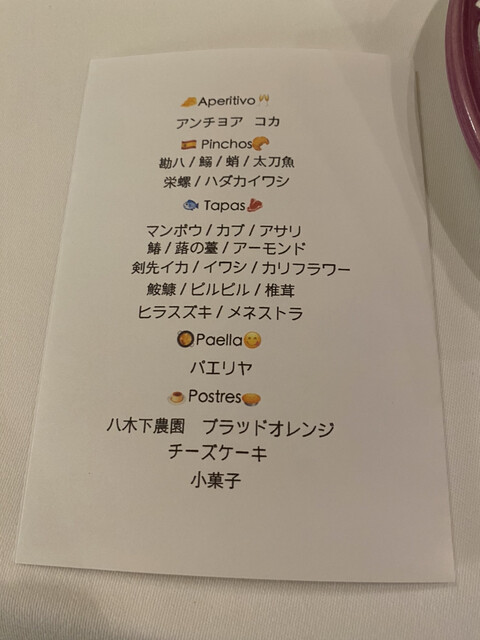 🧀Aperitivo🥂
アンチョア コカ
🇪🇸 Pinchos🥐
勘八 / 鰯 / 蛸 / 太刀魚
栄螺 / ハダカイワシ
🐟 Tapas🥩
マンボウ / カブ / アサリ
鰆 / 蕗の薹 / アーモンド
剣先イカ / イワシ / カリフラワー
鮟鱇 / ピルピル / 椎茸
ヒラスズキ / メネストラ
🥘Paella😋
パエリヤ
🍮 Postres🥧
八木下農園 ブラッドオレンジ
チーズケーキ
小菓子